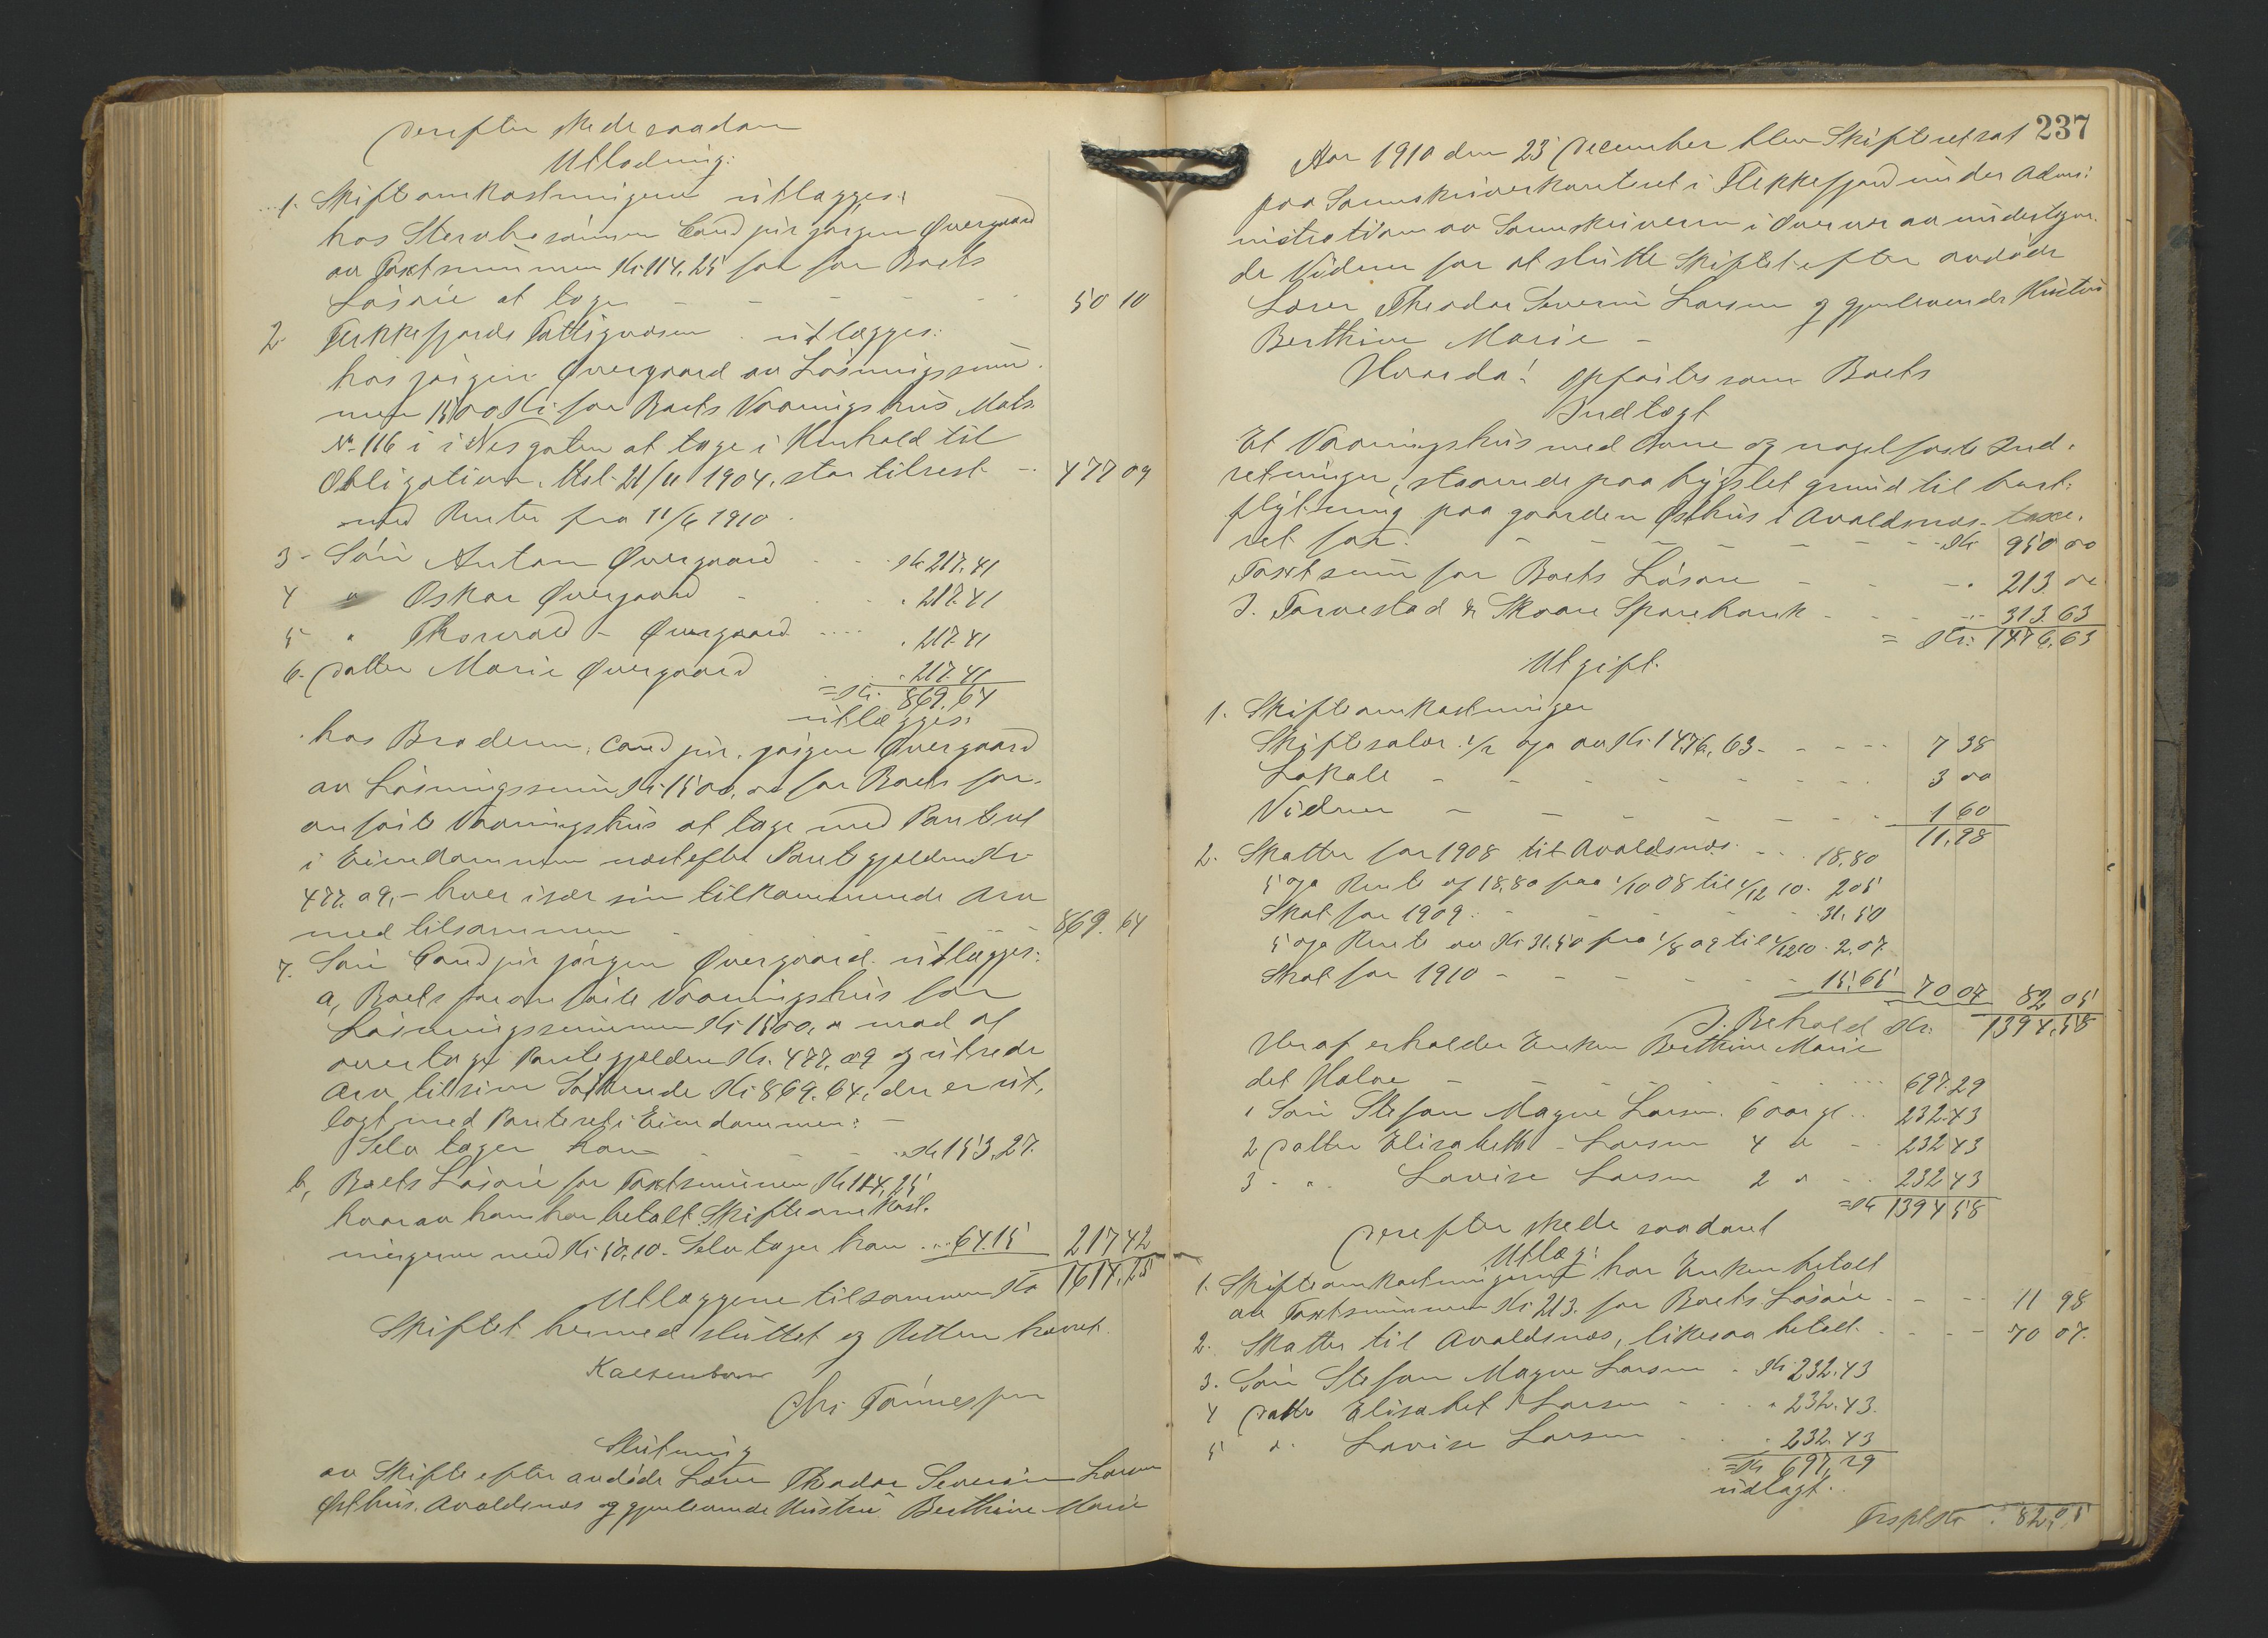 Derefter skede saadan
Utlodning:
1. Skifteomkostningerne utlægges:
hos Stervbosönnen Cand jur Jörgen Övergaard
av Taxtsummen Kr 114,25 for for Boets
Lösöre at tage - - - - 50 10
2. Flekkefjords Fattigvæsen utlægges:
hos Jörgen Övergaard av Lösningssum-
men 1500 Kr for Boets Vaaningshus Matr.
No 116 i Nesgaten at tage i Henhold til
Obligation 21/11 1904, star tilrest - 477 09
med Renter fra 11/6 1910.
3 - Sön Anton Övergaard - - Kr 217.41
4 " Oskar Övergaard - - " 217.41
5 " Thorvald - Övergaard .... " 217.41
6. Datter Marie Övergaard " 217.41
= Kr. 869.64
utlægges:
hos Broderen, Cand jur. Jörgen Övergaard
av Lösningssum Kr 1500,00 for Boets for-
anförte Vaaningshus at tage med Panteret
i Eiendommen næstefter Pantegjælden Kr
477.09, - hver især sin tilkommende Arv
med tilsammen - - - 869. 64
7. Sön Cand jur Jörgen Övergaard utlægges:
a, Boets foranförte Vaaningshus for
Lösningssummen Kr 1500, " mod at
overtage Pantegjælden Kr. 477,09 og utrede
Arv til sine Söskende Kr 869.64, der er ut-
lagt med Panteret i Eiendommen: -
Selv tager han - - - Kr 153,27.
b, Boets Lösöre for Taxtsummen Kr 114,25
hvorav han har betalt Skifteomkost-
ningerne med Kr 50.10. Selv tager han ... 64.15 217 42
Utlæggene tilsammen Kr 1614,25
Skiftet hermed sluttet og Retten hævet.
Chr Tönnessen
Slutning
av Skifte efter avdöde Lærer Theodor Severin Larsen
Östhus, Avaldsnes og gjenlevende Hustru Berthine Marie
237
Aar 1910 den 23 December blev Skifteret sat
paa Sorenskriverkontoret i Flekkefjord under Admi-
nistration av Sorenskriveren i Overvær av undertegne-
de Vidner for at slutte Skiftet efter avdöde
Lærer Theodor Severin Larsen og gjenlevende Hustru
Berthine Marie -
Hvorda: opförtes som Boets
Indtægt
Et Vaaningshus med Ovne og nagelfaste Ind-
retninger, staaende paa bygslet grund til bort-
flytning paa gaarden Östhus i Avaldsnes - taxe-
ret for. - - - - - - - Kr 950 00
Taxtsum for Boets Lösöre - - - " 213. 00
I. Torvestad & Skaare Sparebank - - - 313. 63
= Kr: 1476,63
Utgift.
1. Skifteomkostninger
Skiftesalær 1/2 % av Kr. 1476,63 - - - - 7 38
Lokale - - - - - - - 3 00
Vidner - - - - - - - 1 60
11,98
2. Skatter for 1908 til Avaldsnes - - - 18,80
5 % Rente af 18,80 fra 1/10 08 til 1/12 10. 2 05
Skat for 1909 - - - - - 31.50
5 % Rente av Kr 31.50 fra 1/8 09 til 1/12 10 2,07
Skat for 1910 - - - - - 15,65 70 07 82 05
I. Behold Kr. 1394,58
Heraf erholder Enken Berthine Marie
det Halve - - - - - 697.29
1 Sön Stefan Magne Larsen 6 aar gl .. 232.43
2 Datter Elisabeth - Larsen 4 " - 232 43
3 - " Lovise Larsen 2 " - 232 43
= Kr 1394 58
Derefter skede saadant
Utlæg:
1. Skifteomkostningerne har Enken betalt
av Taxtsummen Kr 213. for Boets Lösöre - - - 11 98
2. Skatter til Avaldsnes, likesaa betalt - - - - 70 07.
3. Sön Stefan Magne Larsen - Kr 232.43
4 Datter Elisabet Larsen - - " 232.43.
5 " Lovise Larsen - - " 232.43
= Kr 697,29
udlagt.
Trspt Kr. 82,05